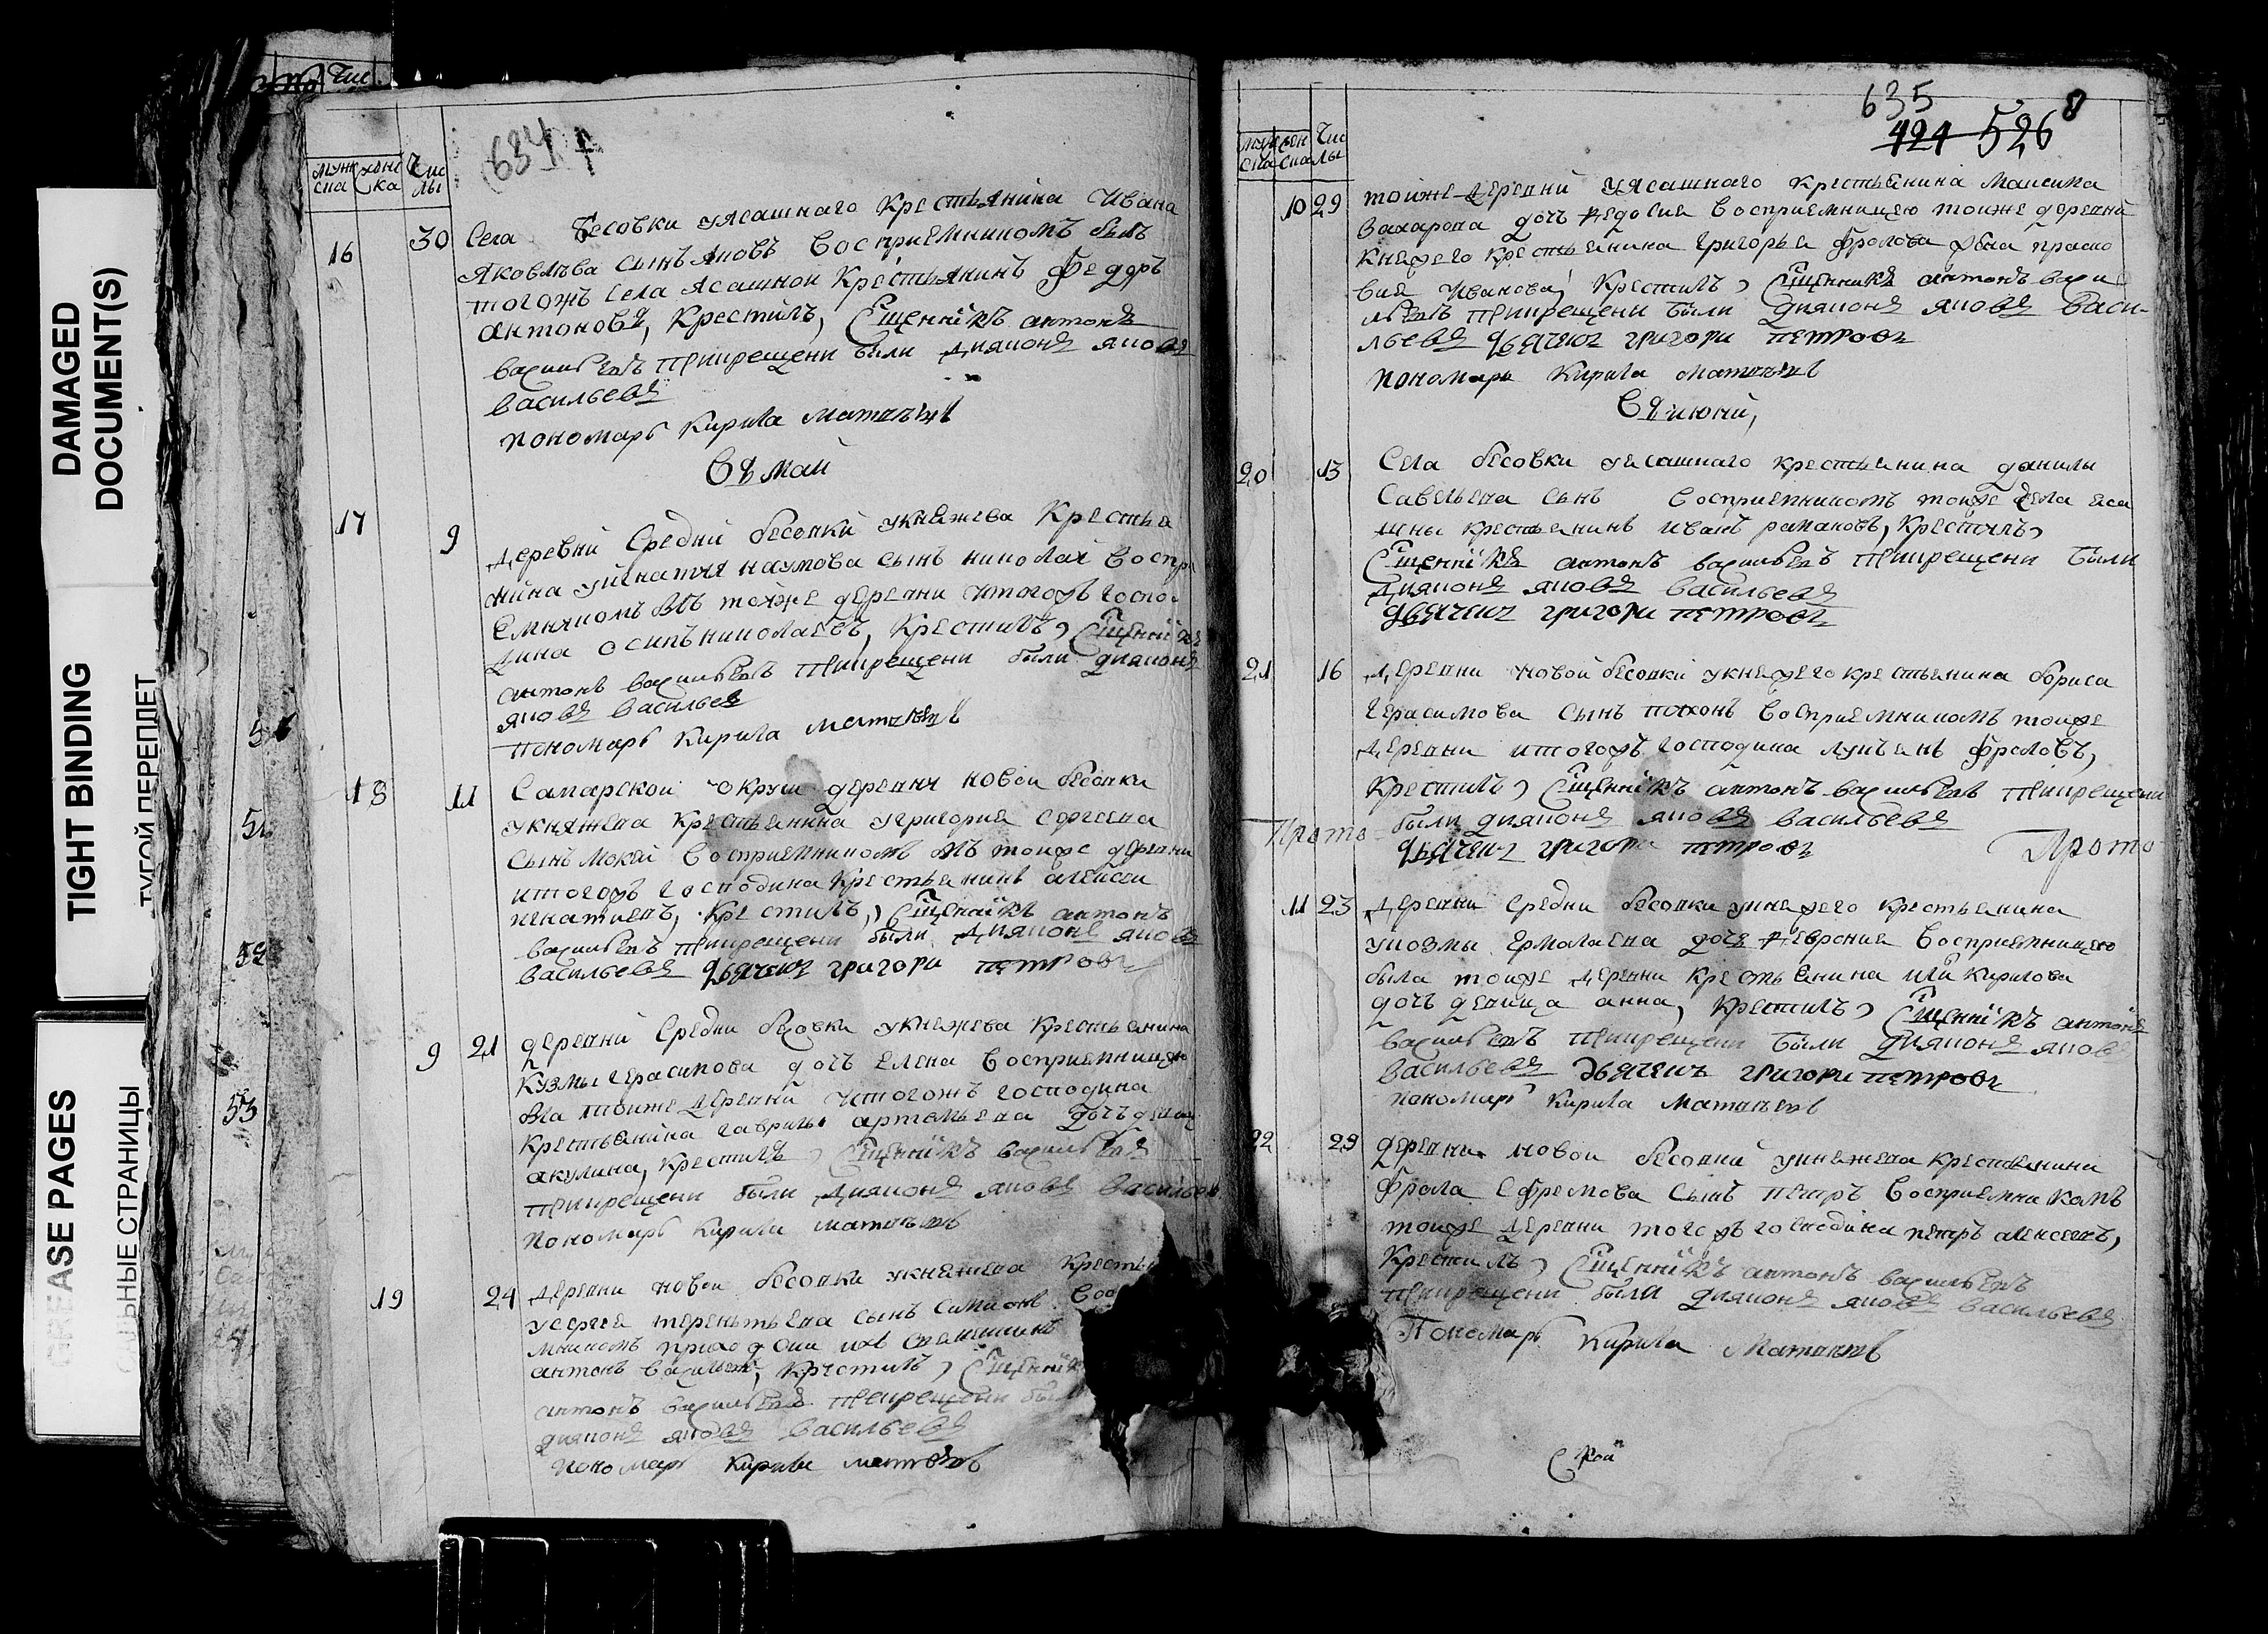 DAMAGED
DOCUMENT(S)
TIGHT BINDING
ТУГОЙ ПЕРЕПЛЕТ
CREASE PAGES
53
634
мужска женска Числы
16 30 Села бесовки уясашнаго крестьянина Ивана
Яковлева сынъ яковъ восприемникомъ былъ
тогожъ села ясашной крестьянинъ федоръ
антоновъ, крестилъ, Сщенникъ антонъ
васильевъ при крещени были дияконъ яковъ
васильевъ
пономарь кирила матвѣевъ
Въ май
17 9 деревни Средни бесовки укняжева крестья
нина уигнатия наумова сынъ николай воспри
емникомъ былъ тойже деревни итогожъ госпо
дина осипъ николаевъ, крестилъ, Сщенникъ
антонъ васильевъ при крещени были дияконъ
яковъ васильевъ
пономарь кирила матвѣевъ
18 11 Самарской округи деревни новой бесовки
укняжева крестьянина угригория сергеева
сынъ мокей восприемникомъ былъ тоиже деревни
итогожъ господина крестьянинъ алексеи
игнатиевъ, крестилъ, Сщенникъ антонъ
васильевъ при крещени были дияконъ яковъ
васильевъ дьячекъ григори петровъ
9 21 деревни Средни бесовки укняжева крестьянина
кузмы герасимова дочь елена восприемницею
была тоиже деревни итогожъ господина
крестьянина гаврилы артемьева дочь девица
акулина, крестилъ, Сщенникъ васильевъ
при крещени были дияконъ яковъ васильевъ
пономарь кирила матвѣевъ
19 24 деревни новой бесовки укняжева кресть
усергея терентьева сынъ симионъ вос
мникомъ приход священникъ
антонъ васильевъ, крестилъ, Сщенникъ
антонъ васильевъ при крещени были
дияконъ яковъ васильевъ
пономарь кирила матвѣевъ
635
424 526 8
мужска женска Числы
10 29 тоиже деревни уясашнаго крестьянина максима
захарова дочь федосия восприемницею тоиже деревни
княжего крестьянина григорья фролова жена праско
вия иванова, крестилъ, Сщенникъ антонъ васи
льевъ при крещени были дияконъ яковъ васи-
льевъ дьячекъ григори петровъ
пономарь кирила матвѣевъ
Въ июни,
20 13 Села бесовки уясашнаго крестьянина данилы
савельева сынъ восприемникомъ тоиже села яса
шны крестьянинъ иванъ рамановъ, крестилъ,
Сщенникъ антонъ васильевъ при крещени были
дияконъ яковъ васильевъ
дьячекъ григори петровъ
21 16 деревни новой бесовки укняжего крестьянина бориса
герасимова сынъ восприемникомъ тоиже
деревни итогожъ господина лукъянъ фроловъ,
крестилъ, Сщенникъ антонъ васильевъ при крещени
были дияконъ яковъ васильевъ
Прото дьячекъ григори петровъ Прото
11 23 деревни Средни бесовки укняжего крестьянина
укозмы ермолаева дочь феврония восприемницею
была тоиже деревни крестьянина ильи кирилова
дочь девица анна, крестилъ, Сщенникъ антонъ
васильевъ при крещени были дияконъ яковъ
васильевъ дьячекъ григори петровъ
пономарь кирила матвѣевъ
22 29 деревни новой бесовки укняжева крестьянина
фрола ефремова сынъ петръ восприемникомъ
тоиже деревни тогожъ господина петръ алексеевъ,
крестилъ, Сщенникъ антонъ васильевъ
при крещени были дияконъ яковъ васильевъ
Пономарь кирила Матвѣевъ